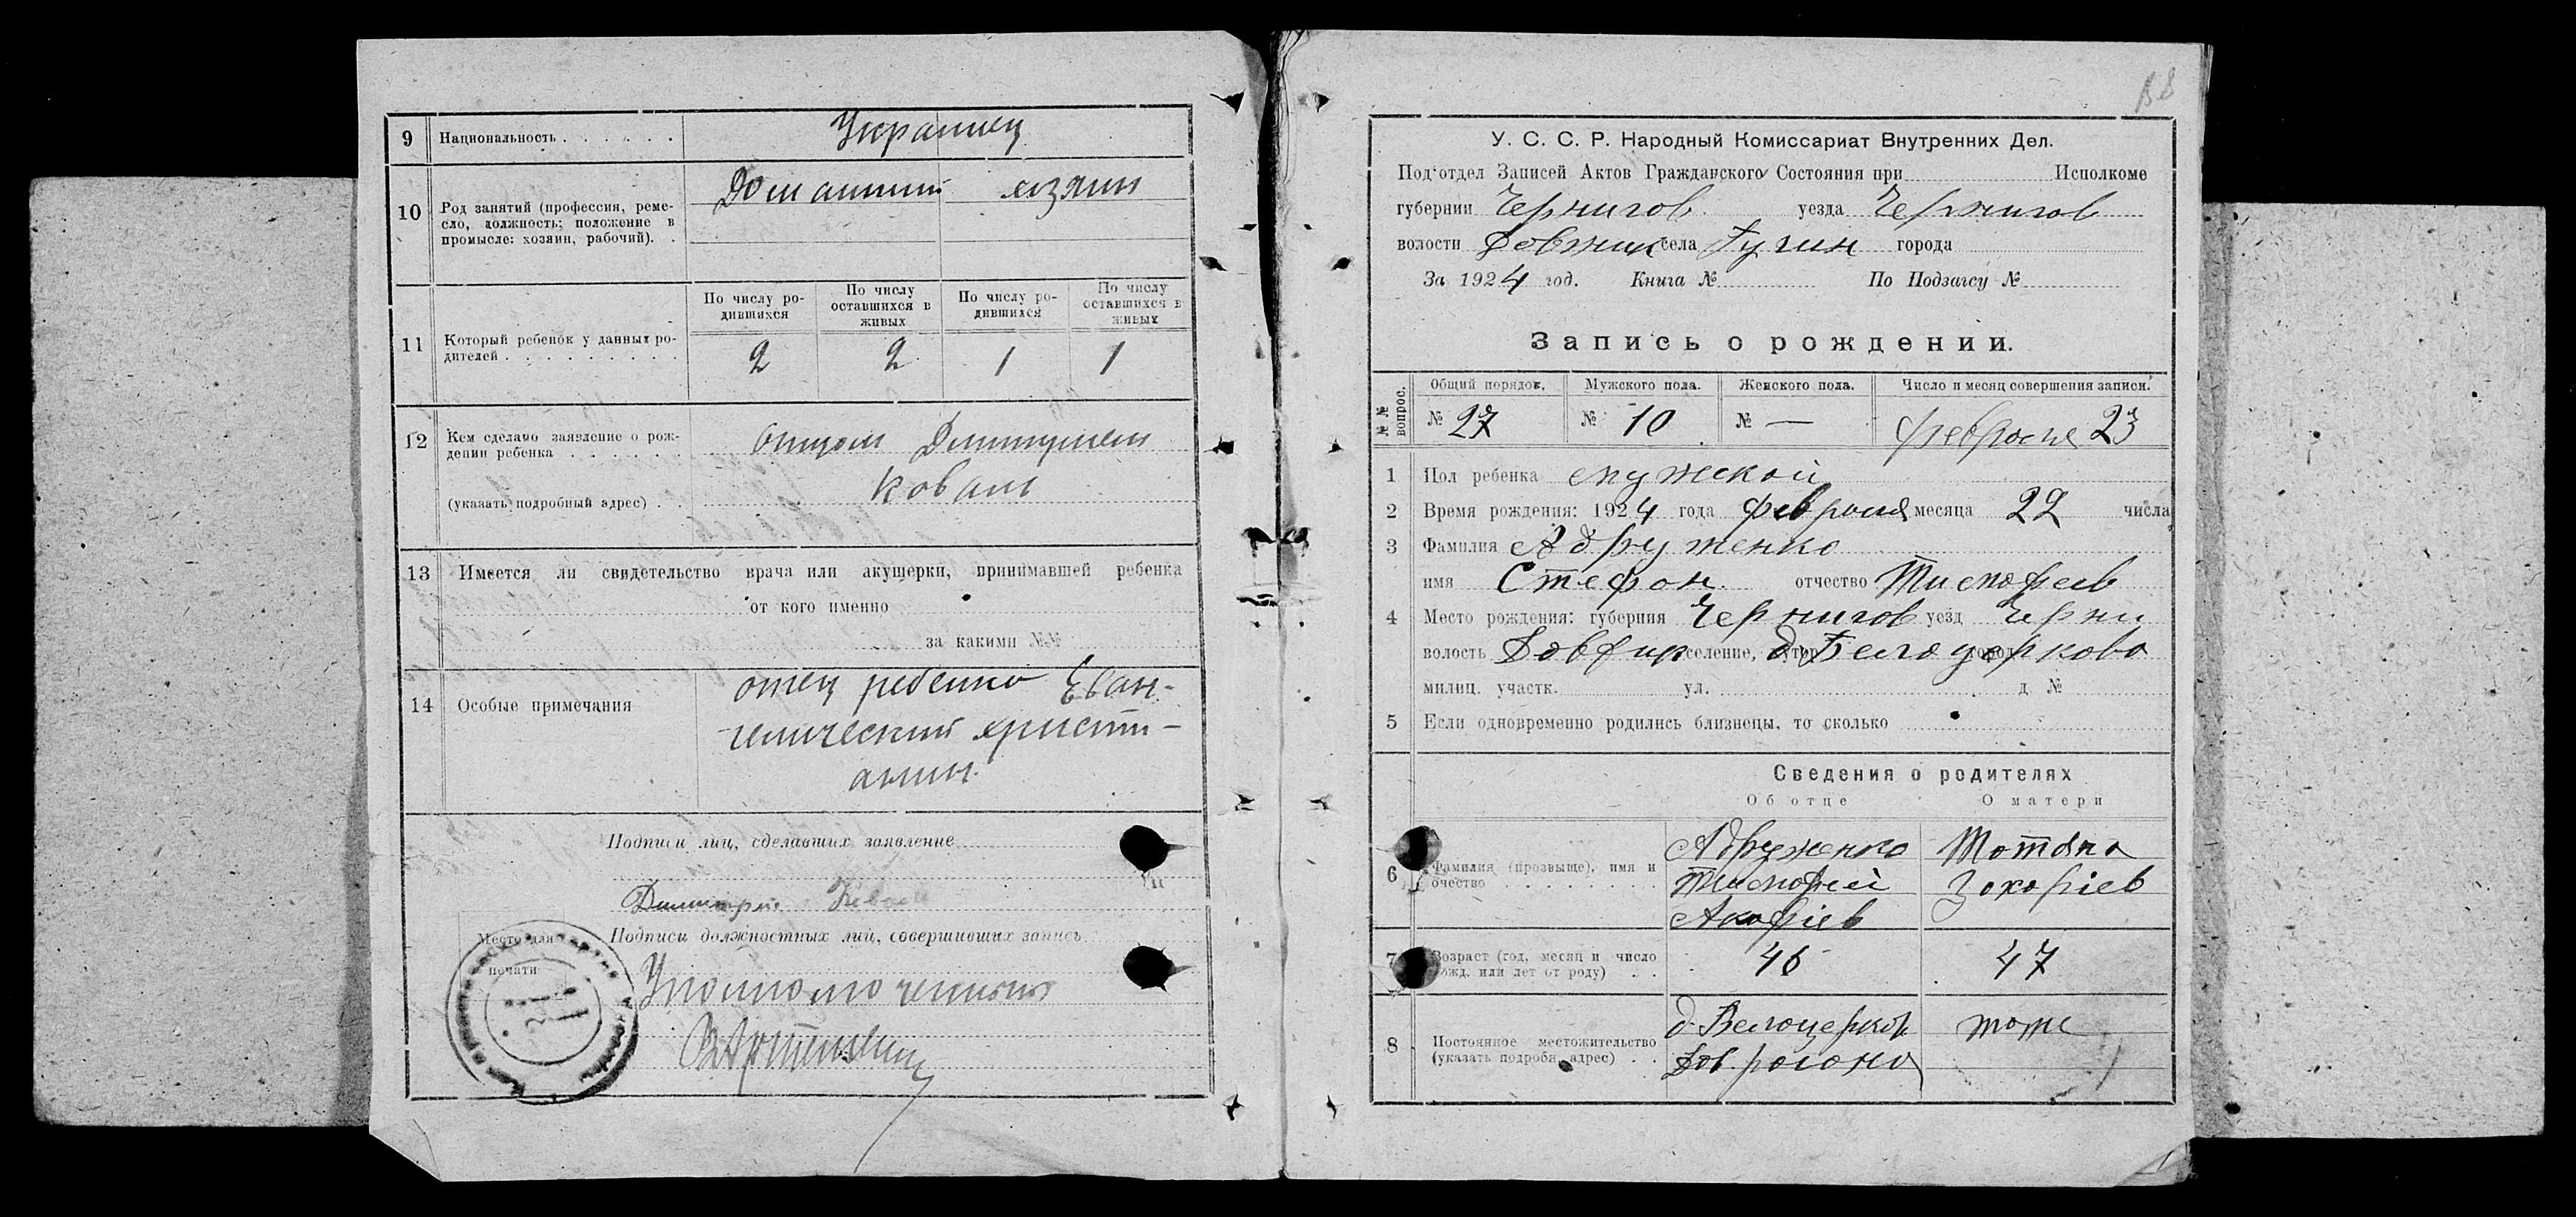 9 Национальность . . . . . . Украинец
10 Род занятий (профессия, реме-
сло, должность; положение в
промысле: хозяин, рабочий). .
Домашний хозяин
По числу ро-
дившихся
По числу
оставшихся в
живых
По числу ро-
дившихся
По числу
оставшихся в
живых
11 Который ребенок у данных ро-
дителей . . . . . . . . .
2 2 1 1
12 Кем сделано заявление о рож-
дении ребенка . . . . . .
(указать подробный адрес) . .
отцом Дмитрием
Коваль
13 Имеется ли свидетельство врача или акушерки, принимавшей ребенка
от кого именно
за какими №№
14 Особые примечания
отец ребенка Еван-
гелический христи-
анин
Подписи лиц, сделавших заявление
Дмитрий Коваль
Подписи должностных лиц, совершивших запись
Место для
печати
Уполномоченный
В8
У. С. С. Р. Народный Комиссариат Внутренних Дел.
Под‘отдел Записей Актов Гражданского Состояния при Исполкоме
губернии Чернигов уезда Чернигов
волости Довжик села Гучин города
За 1924 год. Книга № По Подзагсу №
Запись о рождении.
№ № вопрос.
Общий порядок. Мужского пола. Женского пола. Число и месяц совершения записи.
№ 27 № 10 № — февраля 23
1 Пол ребенка мужской
2 Время рождения: 1924 года февраля месяца 22 числа
3 Фамилия Адруженко
имя Стефан отчество Тимофеев
4 Место рождения: губерния Чернигов уезд Черни
волость селение, д Белоцерковка
милиц. участк. ул. д №
5 Если одновременно родились близнецы, то сколько
Сведения о родителях
Об отце О матери
6 Фамилия (прозвыще), имя и
очество . . . . . . . .
Адруженко
Тимофей
Татяна
Захаріев
7 Возраст (год, месяц и число
рожд. или лет от роду) . .
46 47
8 Постоянное местожительство
(указать подробн. адрес) . .
д. Белоцерков
Дов. района
тоже